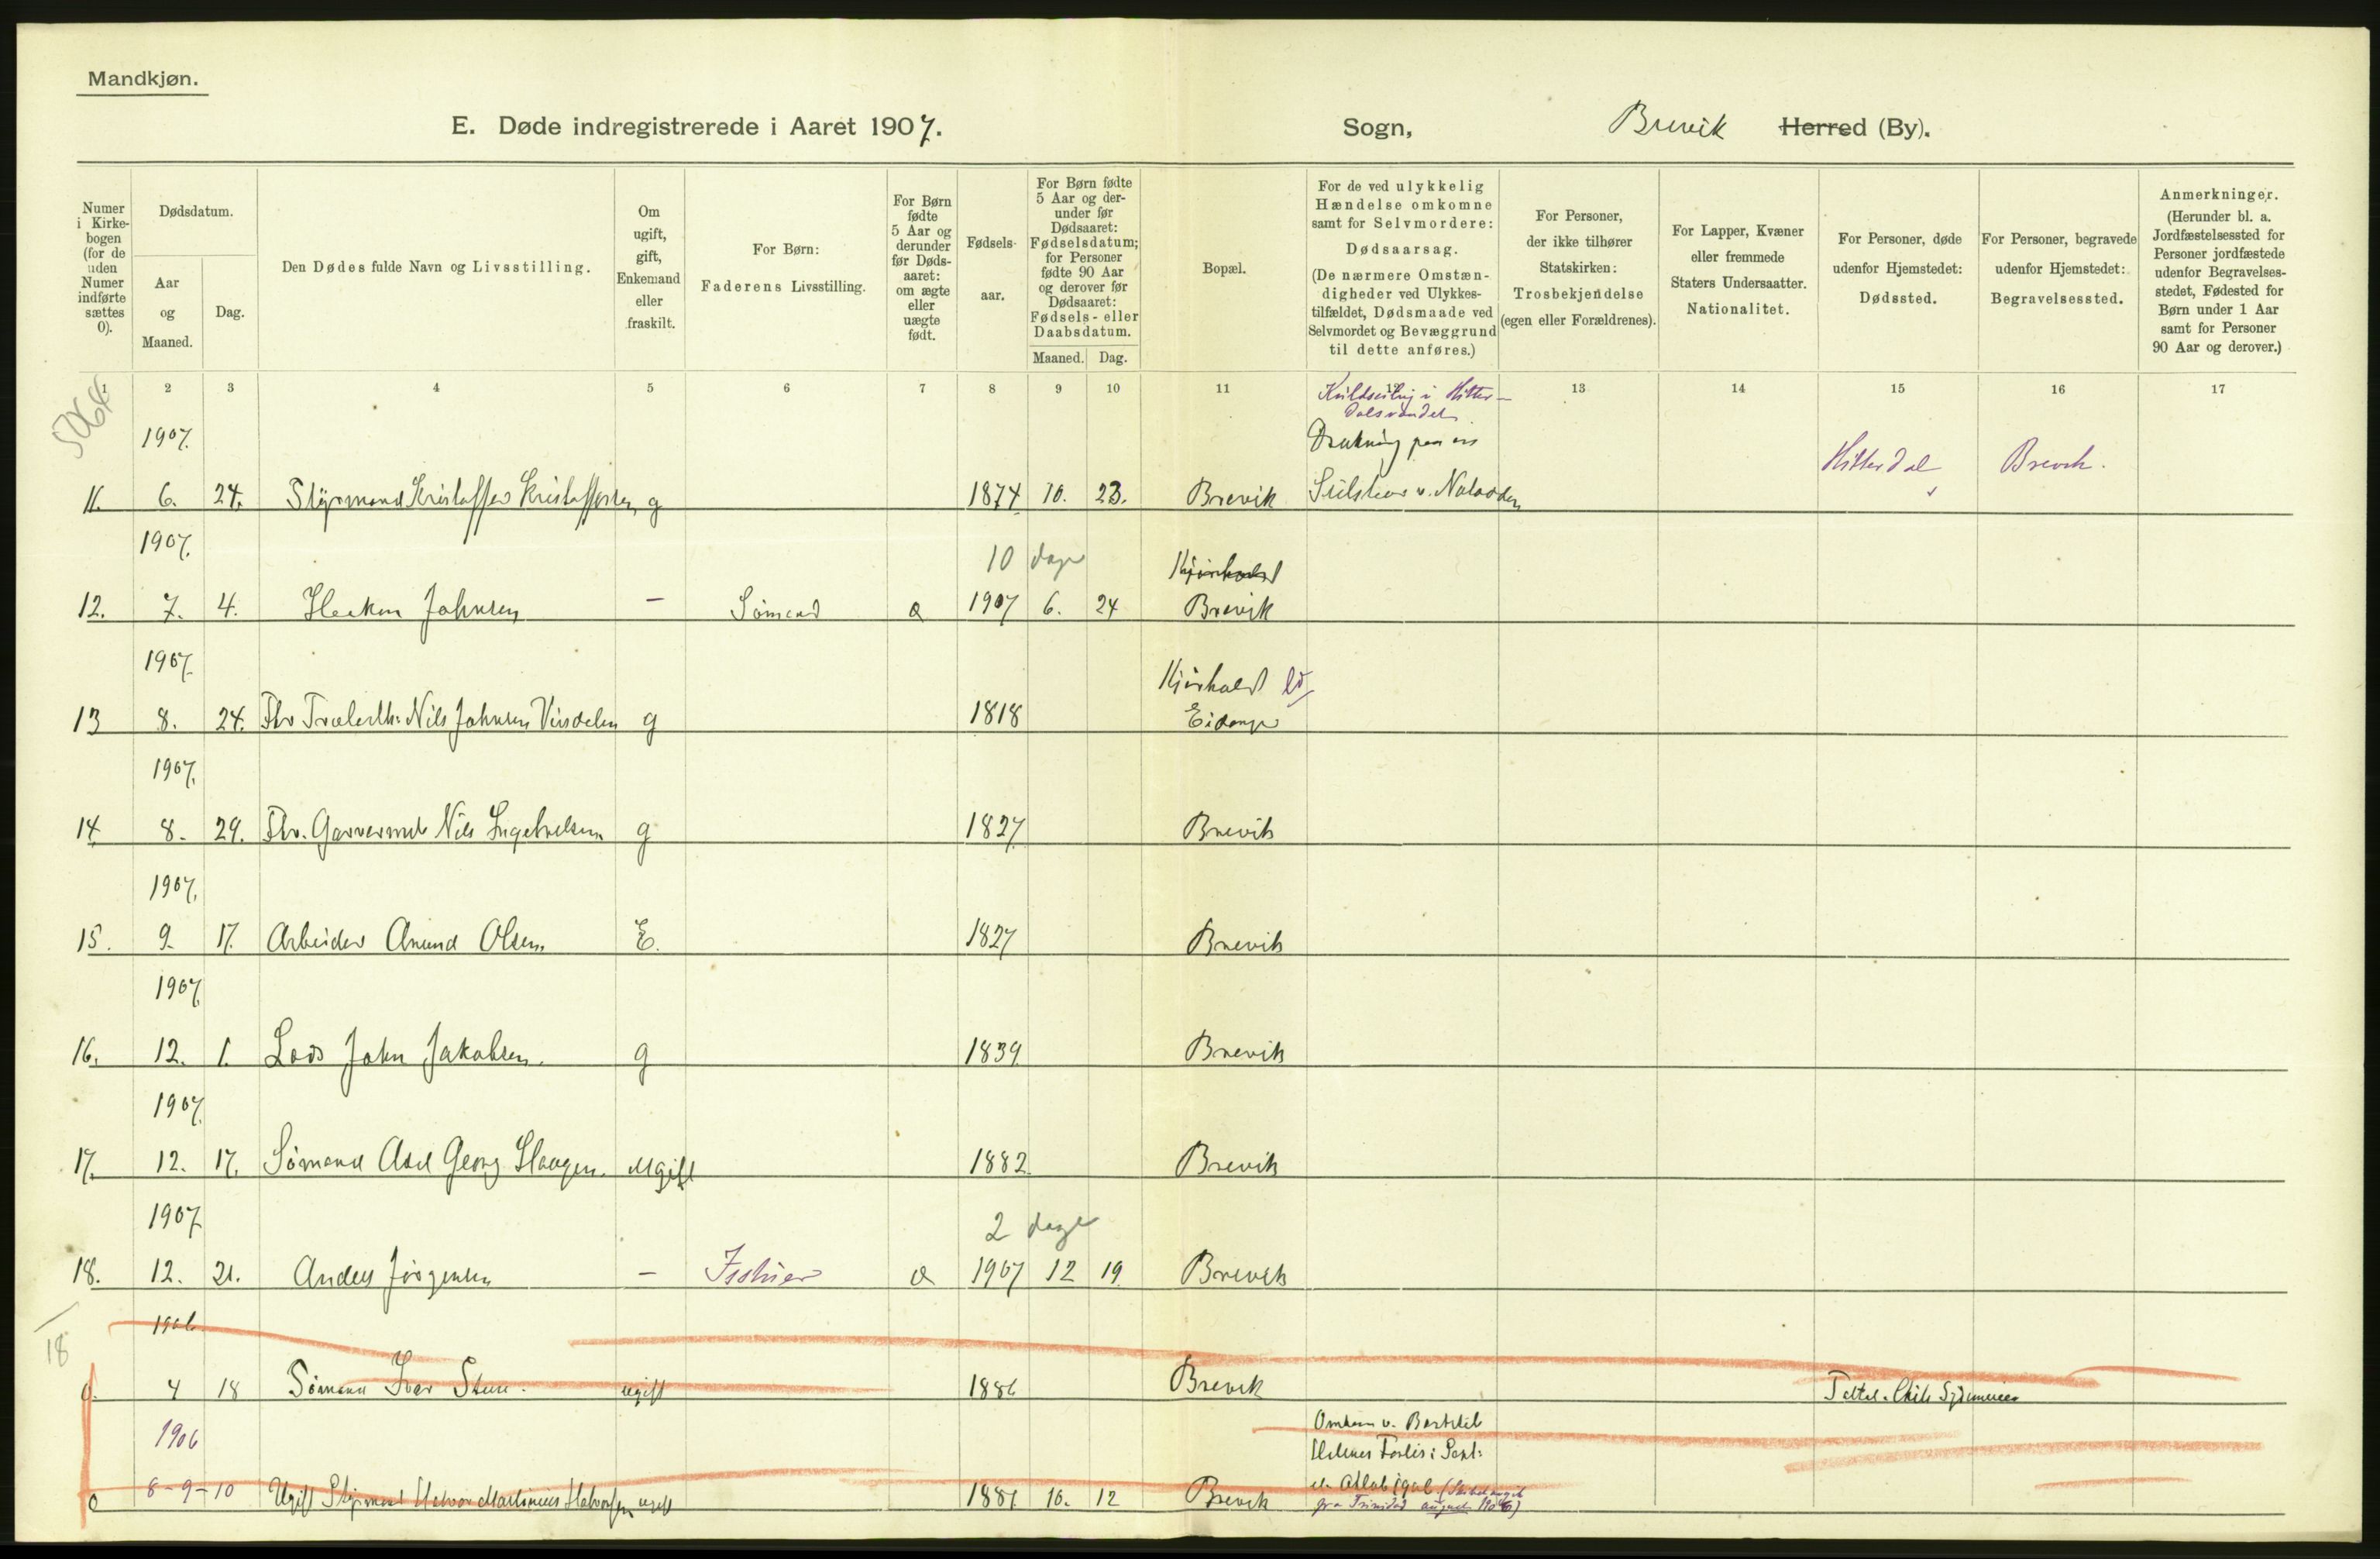 Mandkjøn.
E. Døde indregistrerede i Aaret 1907. Sogn, Brevik Herred (By).
Numer i Kirkebogen (for de uden Numer indførte sættes 0).
Dødsdatum.
Aar og Maaned.
Dag.
Den Dødes fulde Navn og Livsstilling.
Om ugift, gift, Enkemand eller fraskilt.
For Børn: Faderens Livsstilling.
For Børn fødte 5 Aar og derunder før Dødsaaret: om ægte eller uægte født.
Fødselsaar.
For Børn fødte 5 Aar og derunder før Dødsaaret: Fødselsdatum; for Personer fødte 90 Aar og derover før Dødsaaret: Fødsels- eller Daabsdatum.
Maaned. Dag.
Bopæl.
For de ved ulykkelig Hændelse omkomne samt for Selvmordere: Dødsaarsag. (De nærmere Omstændigheder ved Ulykkestilfældet, Dødsmaade ved Selvmordet og Bevæggrund til dette anføres.)
For Personer, der ikke tilhører Statskirken: Trosbekjendelse (egen eller Forældrenes).
For Lapper, Kvæner eller fremmede Staters Undersaatter. Nationalitet.
For Personer, døde udenfor Hjemstedet: Dødssted.
For Personer, begravede udenfor Hjemstedet: Begravelsessted.
Anmerkninger. (Herunder bl. a. Jordfæstelsessted for Personer jordfæstede udenfor Begravelsesstedet, Fødested for Børn under 1 Aar samt for Personer 90 Aar og derover.)
1 2 3 4 5 6 7 8 9 10 11 12 13 14 15 16 17
i Hitter-
dalsvandet
1907. Drukning paa en
11. 6. 24. Styrmand Kristoffer Kristoffersen g 1874 10. 23. Brevik v. Notodden Hitterdal Brevik.
1907. 10 dage Kjørholt
12. 7. 4. Haakon Johnsen - Sømand 1907 6. 24 Brevik
1907. Kjørholt
13 8. 24. Nils Johnsen g 1818 Eidanger
1907.
14 8. 29. Fhv. Garvermester Nils Ingebretsen g 1827 Brevik
1907.
15. 9. 17. Arbeider Anund Olsen. E. 1827 Brevik
1907.
16. 12. 1. Lods John Jakobsen. g 1839 Brevik
1907.
17. 12. 17. Sømand Axel Georg Haagen. ugift 1882 Brevik
1907 2 dage
18. 12. 21. Anders Jørgensen - 1907 12 19 Brevik
18
1906
0. 4 18 Sømand Iver ugift 1886 Brevik Chile Sydamerica
1906 Omkom v.
Forlis i
0 8-9-10 Ugift Styrmand Halvor Martinius Halvorsen ugift 1881 10. 12 Brevik
fra Trinidad august 1906)